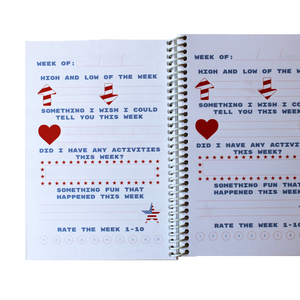 WEEK OF:
HIGH AND LOW OF THE WEEK
SOMETHING I WISH I COULD
TELL YOU THIS WEEK
DID I HAVE ANY ACTIVITIES
THIS WEEK?
SOMETHING FUN THAT
HAPPENED THIS WEEK
RATE THE WEEK 1-10
WEEK OF:
HIGH AND LOW OF THE WEEK
SOMETHING I WISH I COULD
TELL YOU THIS WEEK
DID I HAVE ANY ACTIVITIES
THIS WEEK?
SOMETHING FUN THAT
HAPPENED THIS WEEK
RATE THE WEEK 1-10